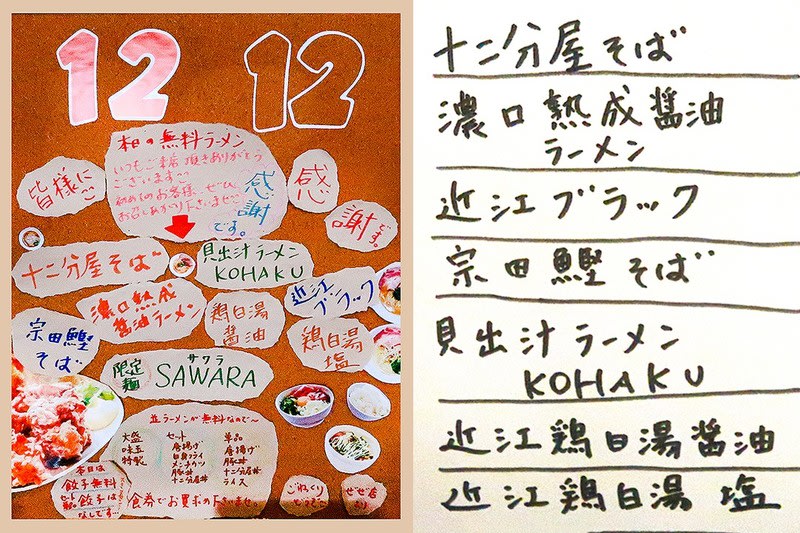 12 12
本日の無料ラーメン
いつもご来店頂きありがとう
ございます
初めてのお客様、ぜひ
お召しあがり下さいませ
感謝
です。
皆様に
感
謝です。
十二分屋そば
見出汁ラーメン
KOHAKU
濃口熟成
醤油ラーメン
鶏白湯
醤油
近江
ブラック
宗田鰹
そば
鶏白湯
塩
限定
麺
サワラ
SAWARA
並ラーメンが無料なので〜
大盛
味玉
特製
セット
唐揚げ
白身フライ
メンチカツ
豚丼
十二分屋丼
単品
唐揚げ
豚丼
十二分屋丼
ライス
食券でお買求め下さいませ。
本日は
餃子無料
セット
餃子は
なしです…
ごゆっくり
どうぞ
ぜぜ店
より
十二分屋そば
濃口熟成醤油
ラーメン
近江ブラック
宗田鰹そば
見出汁ラーメン
KOHAKU
近江鶏白湯醤油
近江鶏白湯 塩